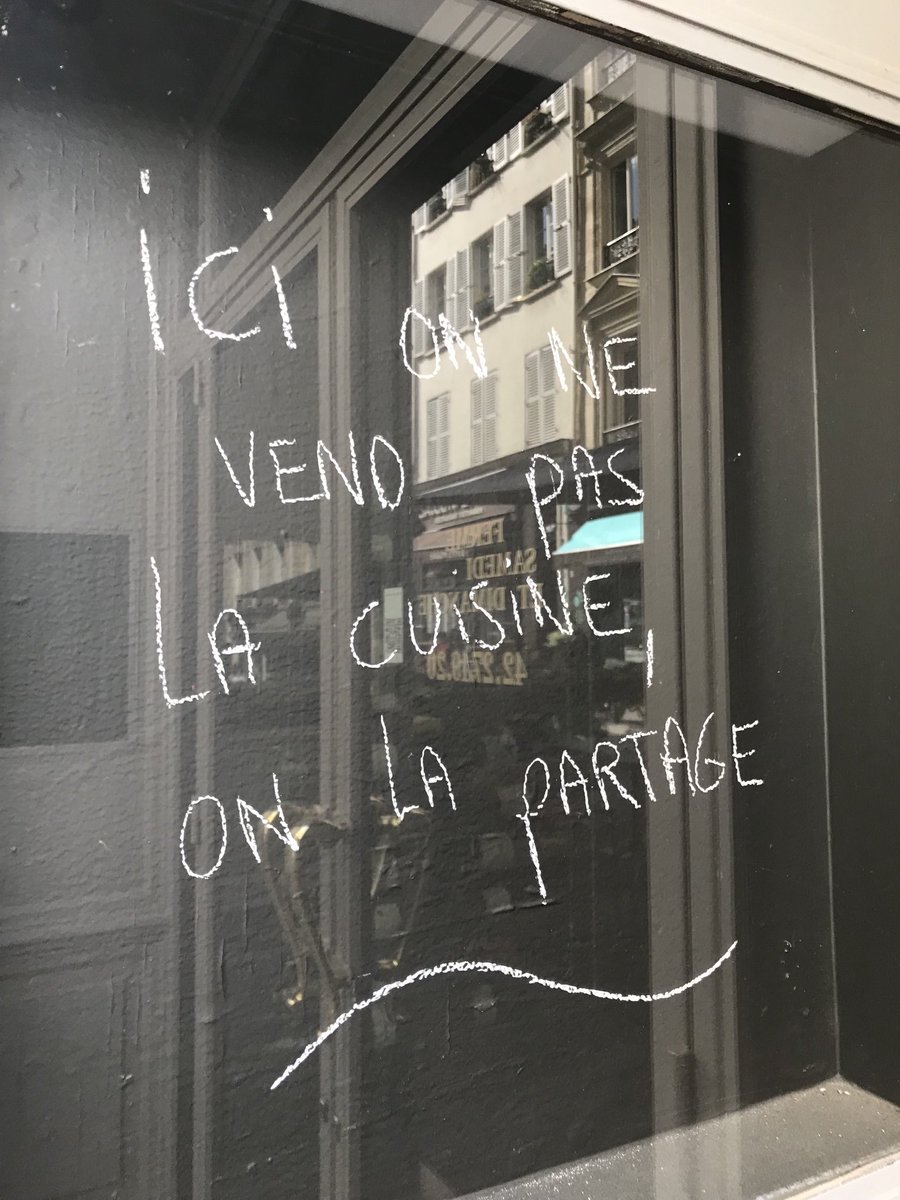 ici ON NE
VEND PAS
LA CUiSiNE,
ON LA PARTAGE
FERMÉ
SAMEDI
ET DIMANCHE
42.27.19.20